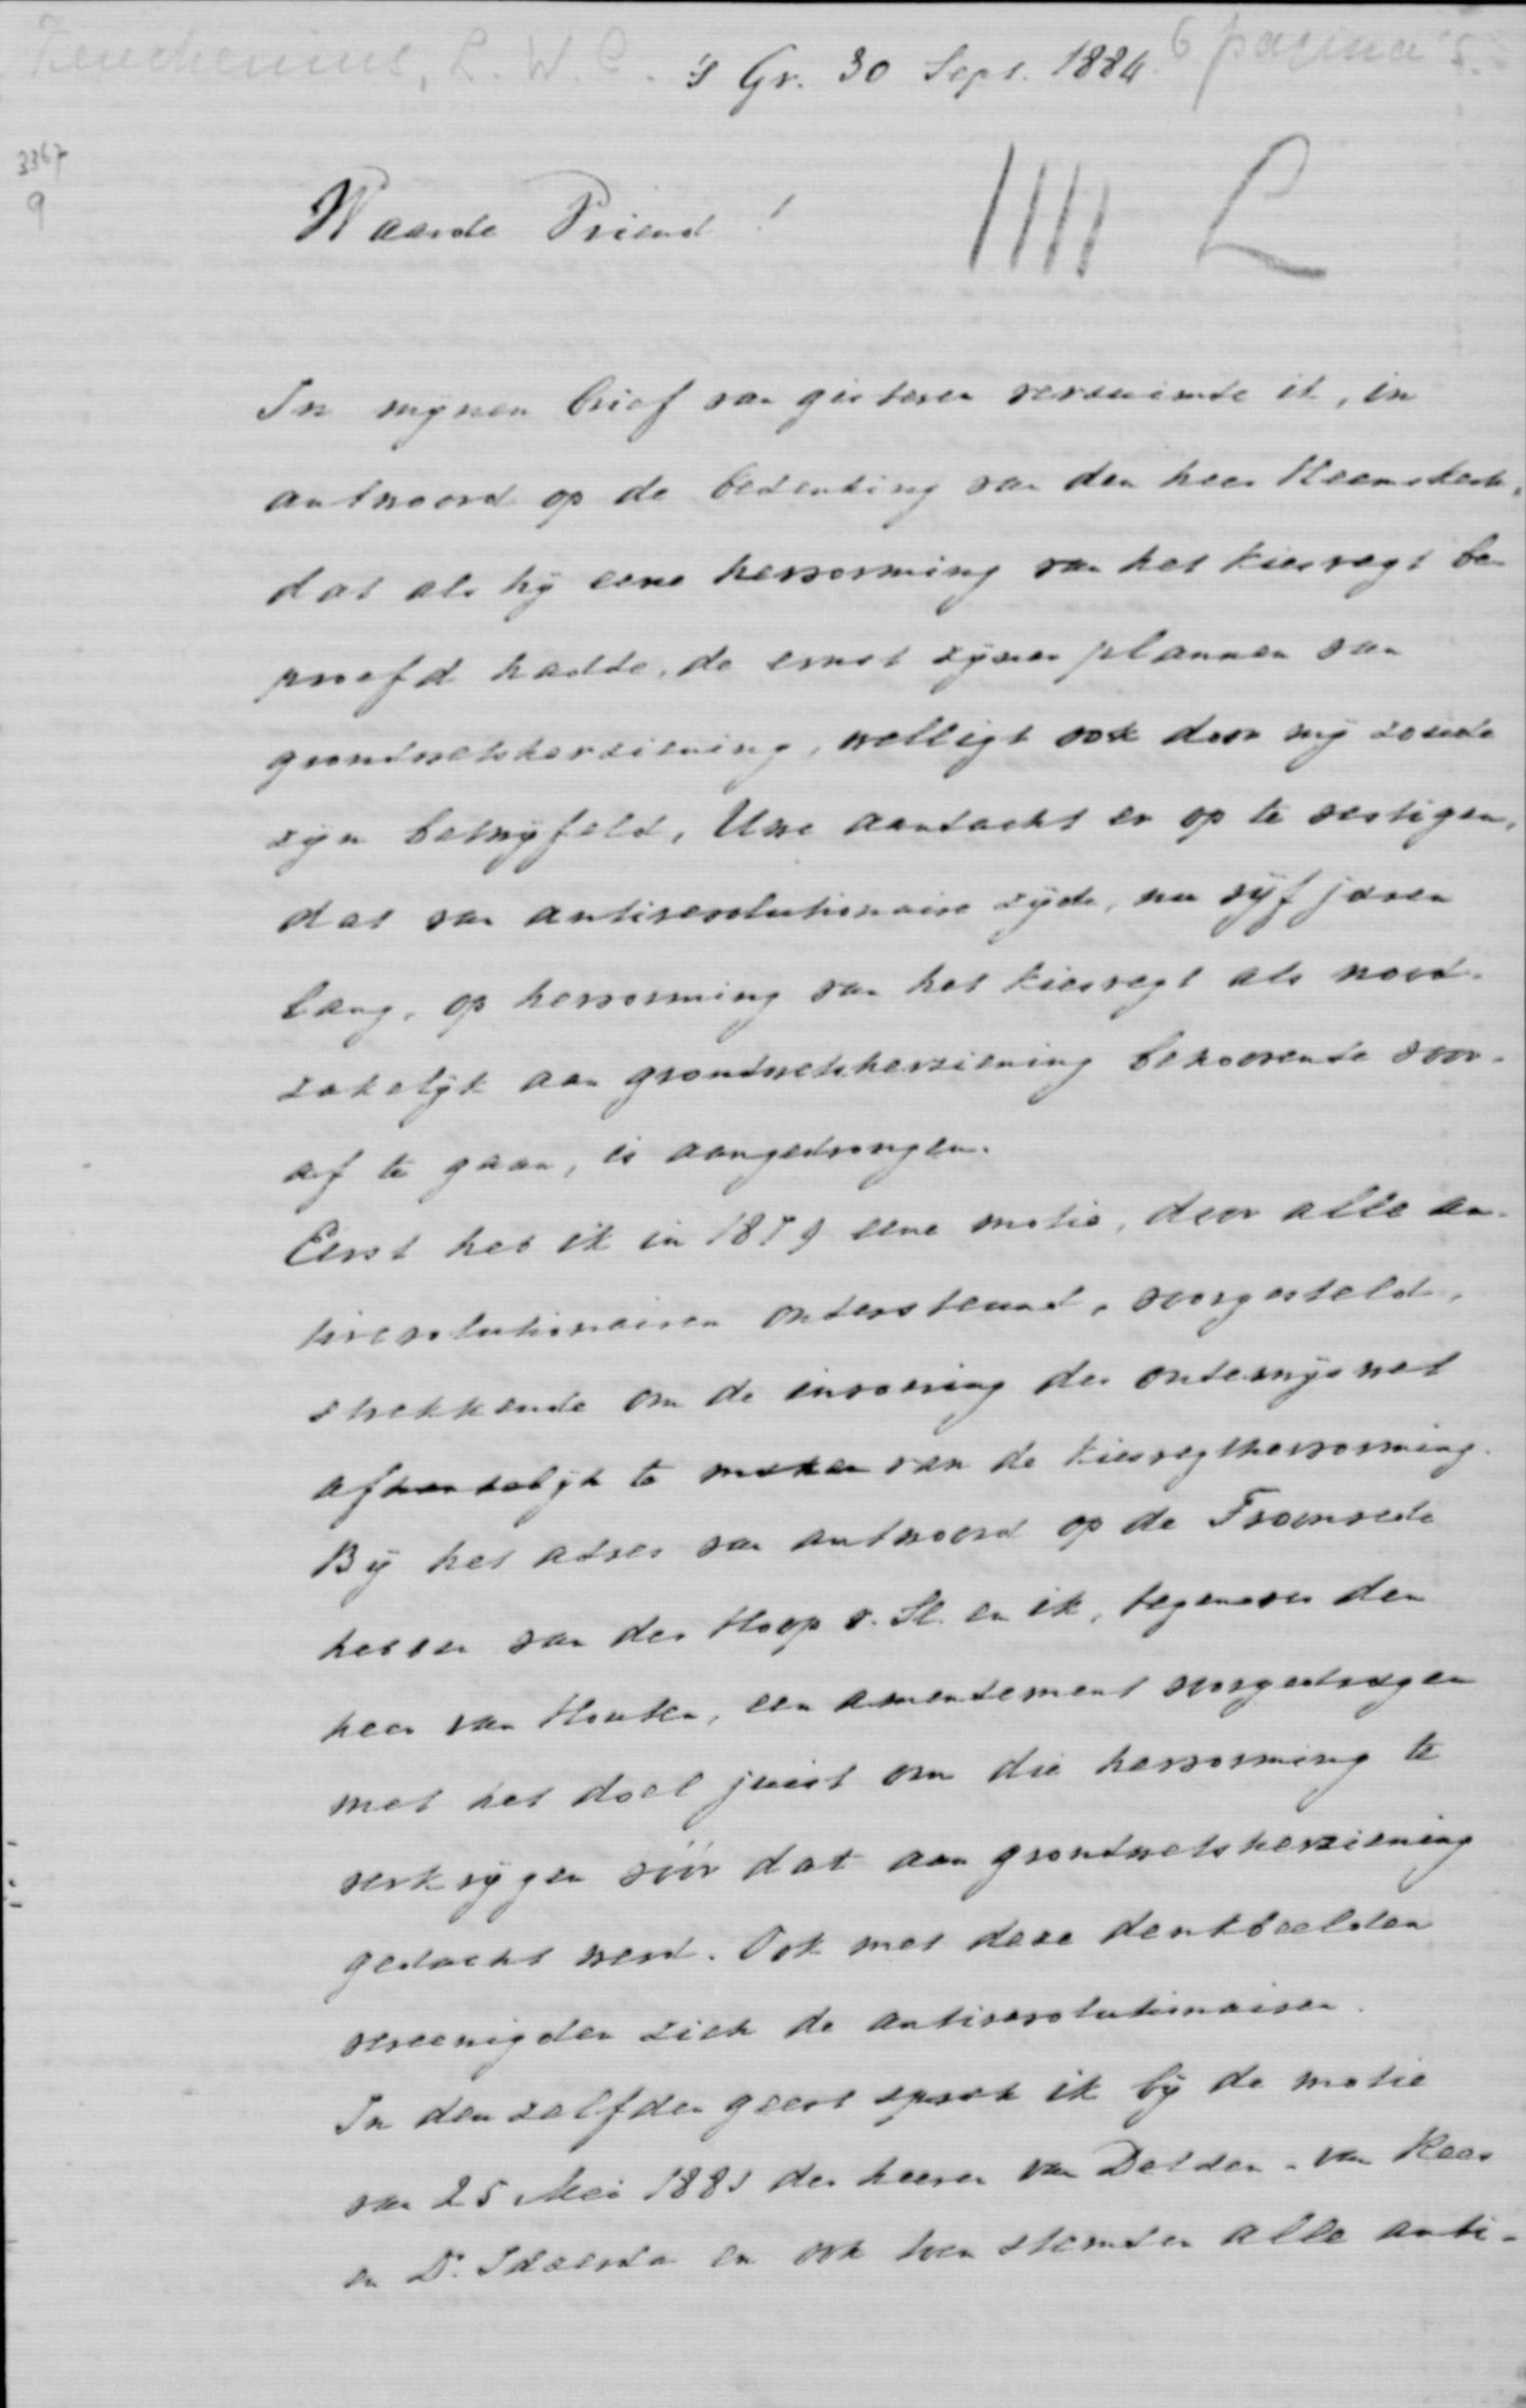 Keuchenius, L. W. C.
6 pagina's.
's Gr. 30 Sept. 1884.
3367
9
Waarde Vriend!
L
In mijnen brief van gisteren verzuimde ik, in
antwoord op de bedenking van den heer Heemskerk,
dat als hij eene hervorming van het kiesregt be-
proefd hadde, de ernst zijner plannen van
grondwetsherziening, welligt ook door mij zoude
zijn betwijfeld, Uwe aandacht er op te vestigen,
dat van antirevolutionaire zijde, nu vijf jaren
lang, op hervorming van het kiesregt als nood-
zakelijk aan grondwetsherziening behoorende voor-
af te gaan, is aangedrongen.
Eerst heb ik in 1879 eene motie, door alle an-
tirevolutionairen ondersteund, voorgesteld,
strekkende om de invoering der onderwijswet
afhankelijk te maken van de kiesregthervorming.
Bij het adres van antwoord op de Troonrede
hebben van der Hoop v. Sl. en ik, tegenover den
heer van Houten, een amendement voorgedragen
met het doel juist om die hervorming te
verkrijgen vóór dat aan grondwetsherziening
gedacht werd. Ook met deze denkbeelden
vereenigden zich de antirevolutionairen.
In denzelfden geest sprak ik bij de motie
van 25 Mei 1881 der heeren van Delden - van Rees
en Dr. Idzerda en ook toen stemden alle anti-